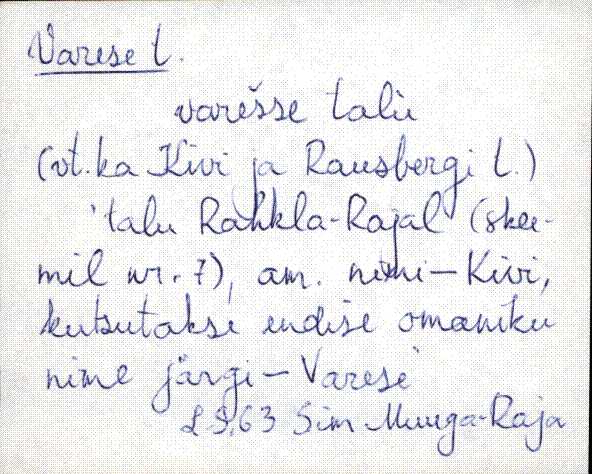 Varese t.
varešse talu
(vt. ka Kivi ja Rausbergi t.)
'talu Rahkla-Rajal (skee-
mil nr. 7), am. nimi – Kivi,
kutsutakse endise omaniku
nime järgi – Varese'
Sim Muuga-Raja